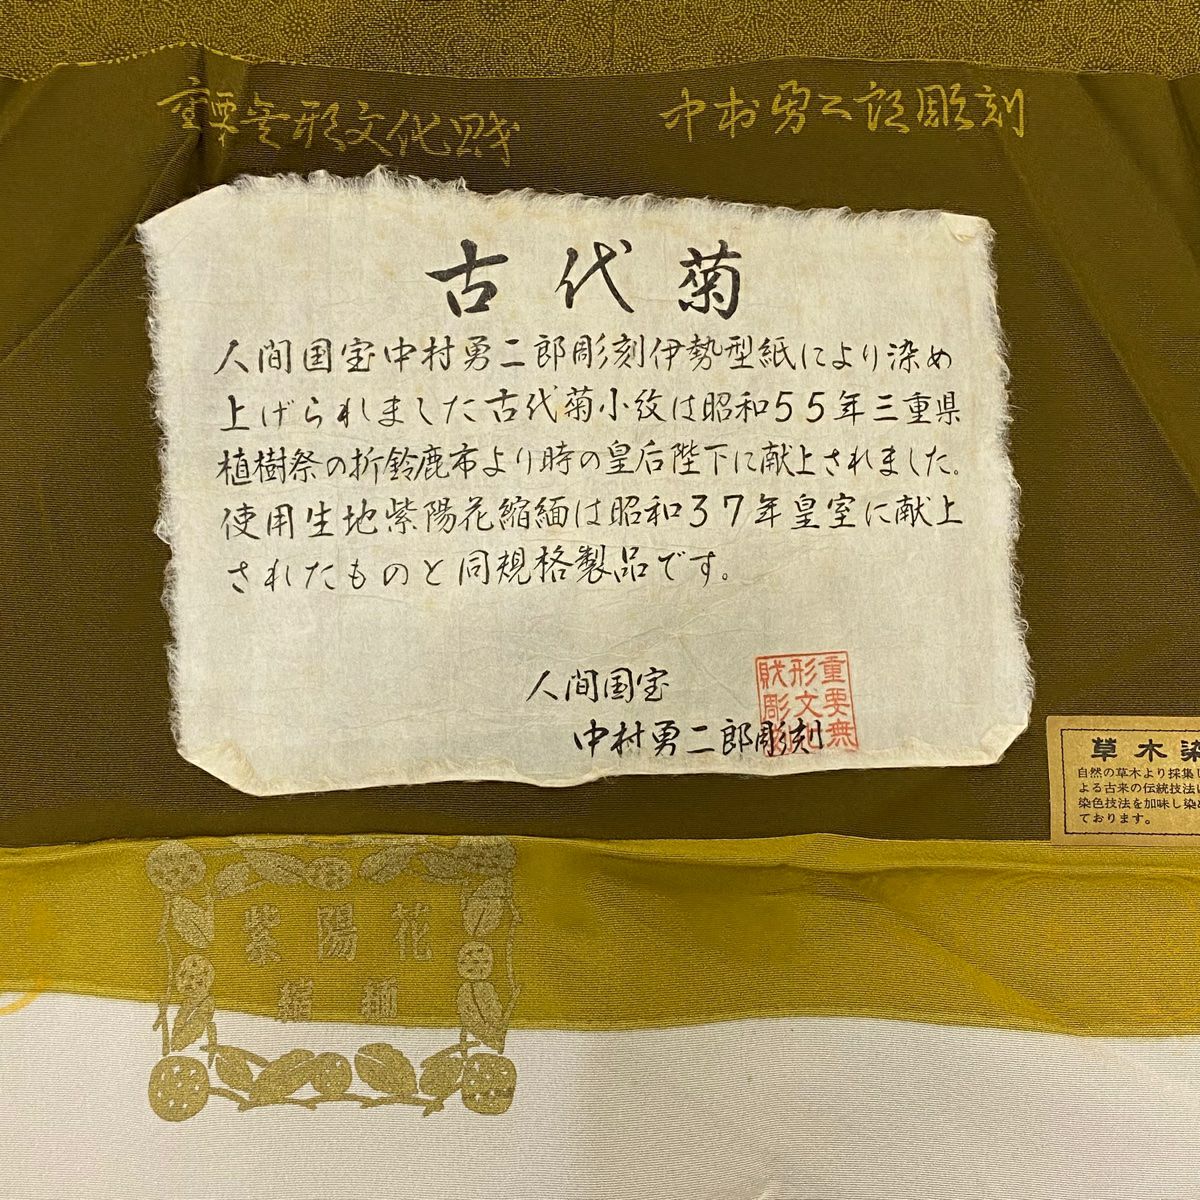 重要無形文化財
中村勇二郎彫刻
古代菊
人間国宝中村勇二郎彫刻伊勢型紙により染め
上げられました古代菊小紋は昭和55年三重県
植樹祭の折鈴鹿市より時の皇后陛下に献上されました。
使用生地紫陽花縮緬は昭和37年皇室に献上
されたものと同規格製品です。
人間国宝
中村勇二郎彫刻
重要無
形文化
財彫
草木染
自然の草木より採集し
よる古来の伝統技法に
染色技法を加味し染め
ております。
紫陽花
縮緬